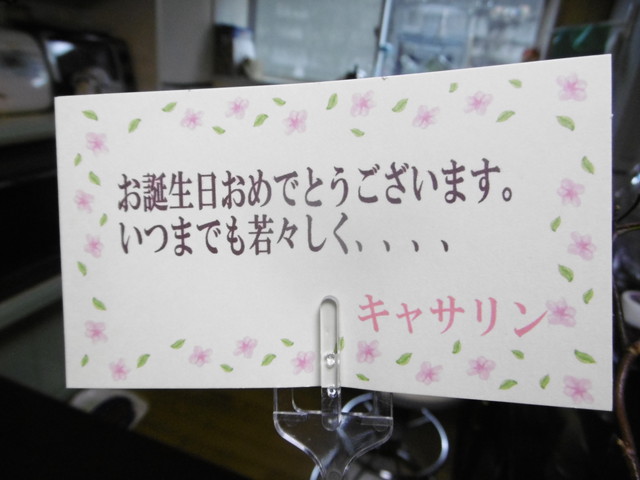 お誕生日おめでとうございます。
いつまでも若々しく、、、、
キャサリン